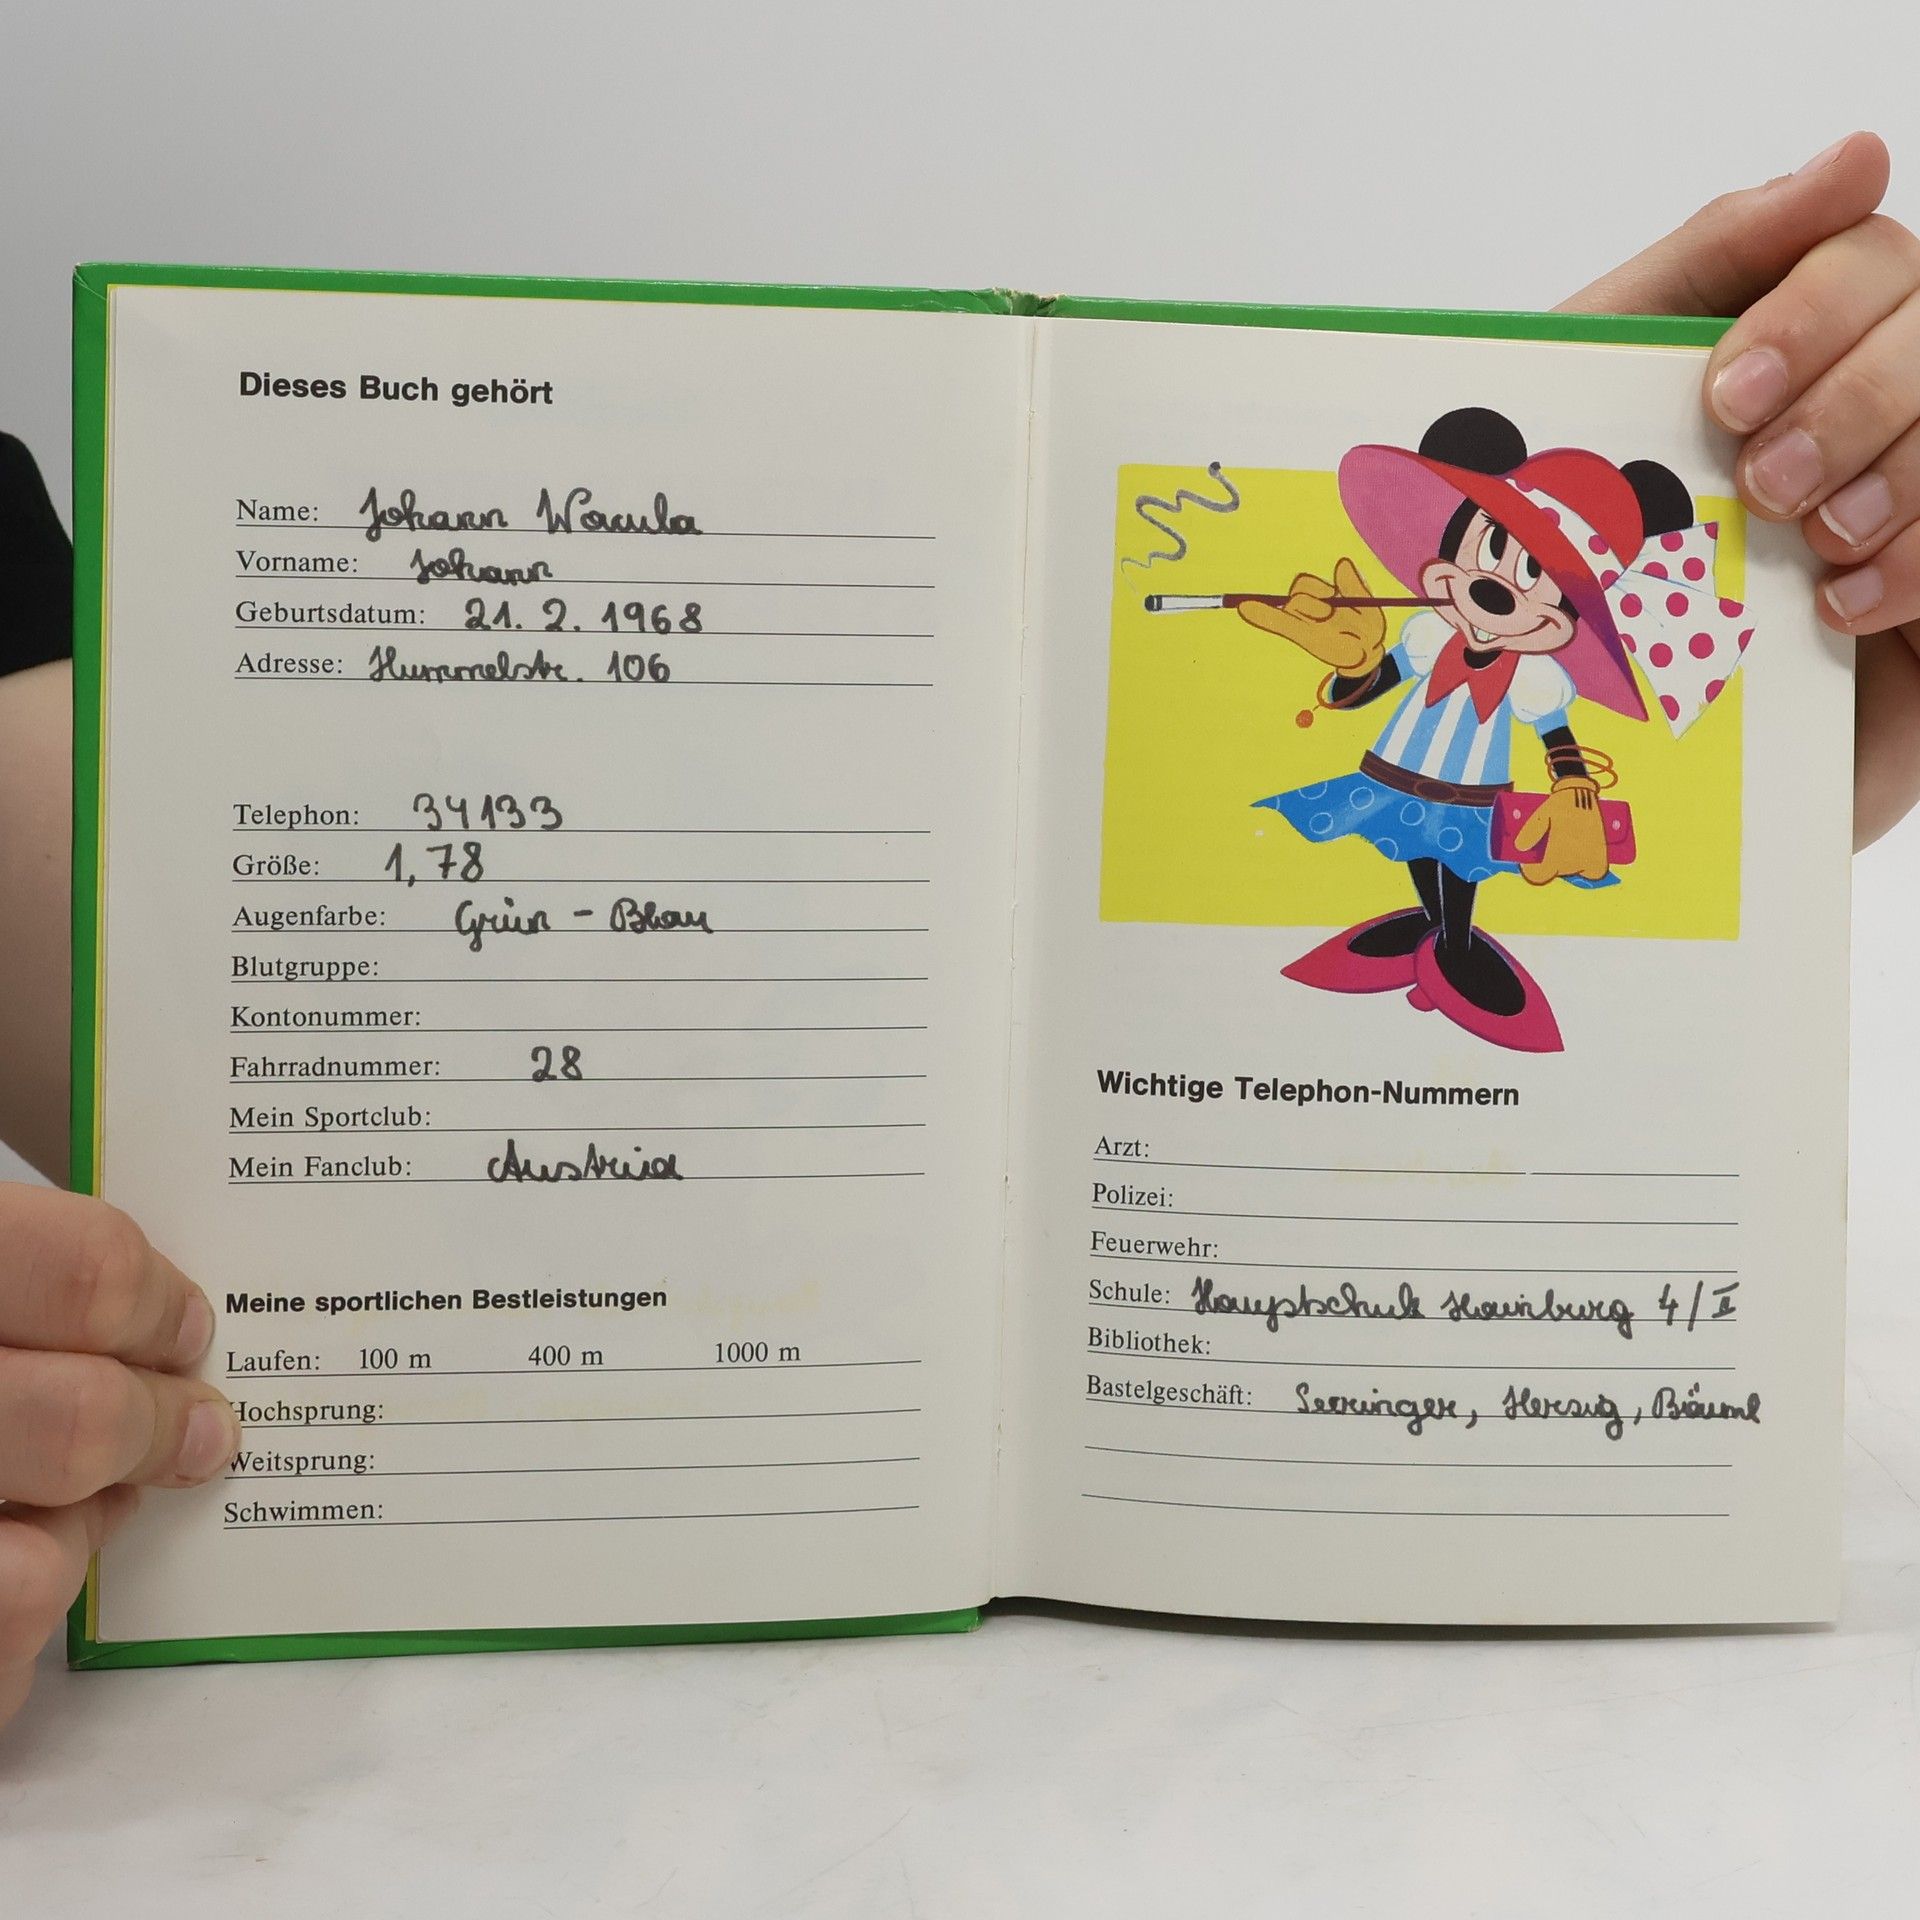 Dieses Buch gehört
Name: Johann Wacula
Vorname: Johann
Geburtsdatum: 21. 2. 1968
Adresse: Hummelstr. 106
Telephon: 34133
Größe: 1,78
Augenfarbe: Grün - Blau
Blutgruppe:
Kontonummer:
Fahrradnummer: 28
Mein Sportclub:
Mein Fanclub: Austria
Meine sportlichen Bestleistungen
Laufen: 100 m 400 m 1000 m
Hochsprung:
Weitsprung:
Schwimmen:
Wichtige Telephon-Nummern
Arzt:
Polizei:
Feuerwehr:
Schule: Hauptschule Hainburg 4/II
Bibliothek:
Bastelgeschäft: Herzig, Bäuml